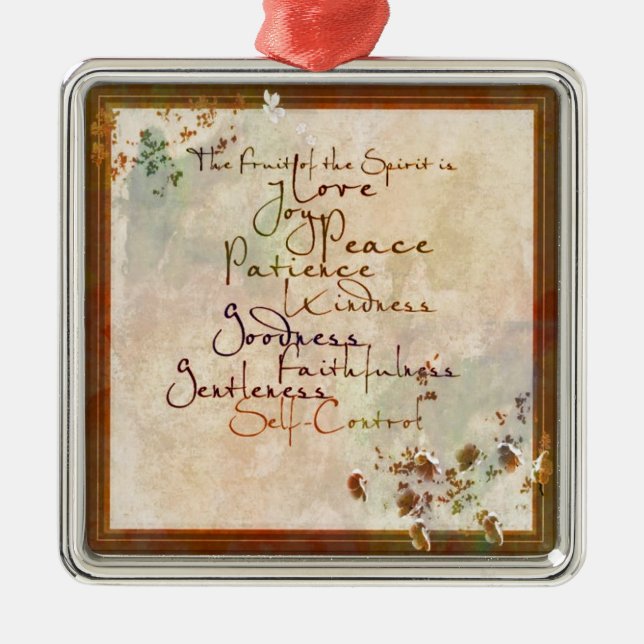 The Fruit of the Spirit is
Love
Joy
Peace
Patience
Kindness
Goodness
Faithfulness
Gentleness
Self-Control